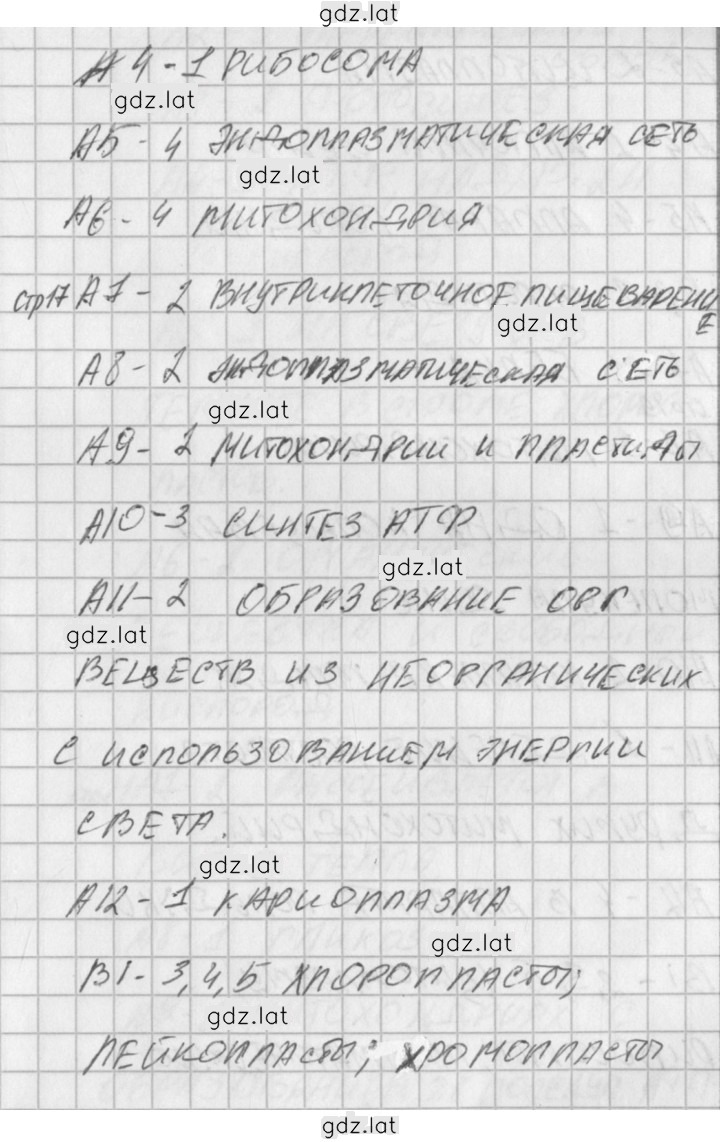 gdz.lat
А4-1 РИБОСОМА
gdz.lat
А5-4 ЭНДОПЛАЗМАТИЧЕСКАЯ СЕТЬ
gdz.lat
А6-4 МИТОХОНДРИЯ
стр17 А7-2 ВНУТРИКЛЕТОЧНОЕ ПИЩЕВАРЕНИ
Е
gdz.lat
А8-2 ЭНДОПЛАЗМАТИЧЕСКАЯ СЕТЬ
gdz.lat
А9-2 МИТОХОНДРИИ И ПЛАСТИДЫ
А10-3 СИНТЕЗ АТФ
gdz.lat
А11-2 ОБРАЗОВАНИЕ ОРГ
gdz.lat
ВЕЩЕСТВ ИЗ НЕОРГАНИЧЕСКИХ
С ИСПОЛЬЗОВАНИЕМ ЭНЕРГИИ
СВЕТА.
gdz.lat
А12-1 КАРИОПЛАЗМА
gdz.lat
В1-3,4,5 ХЛОРОПЛАСТЫ;
gdz.lat
ЛЕЙКОПЛАСТЫ; ХРОМОПЛАСТЫ
gdz.lat